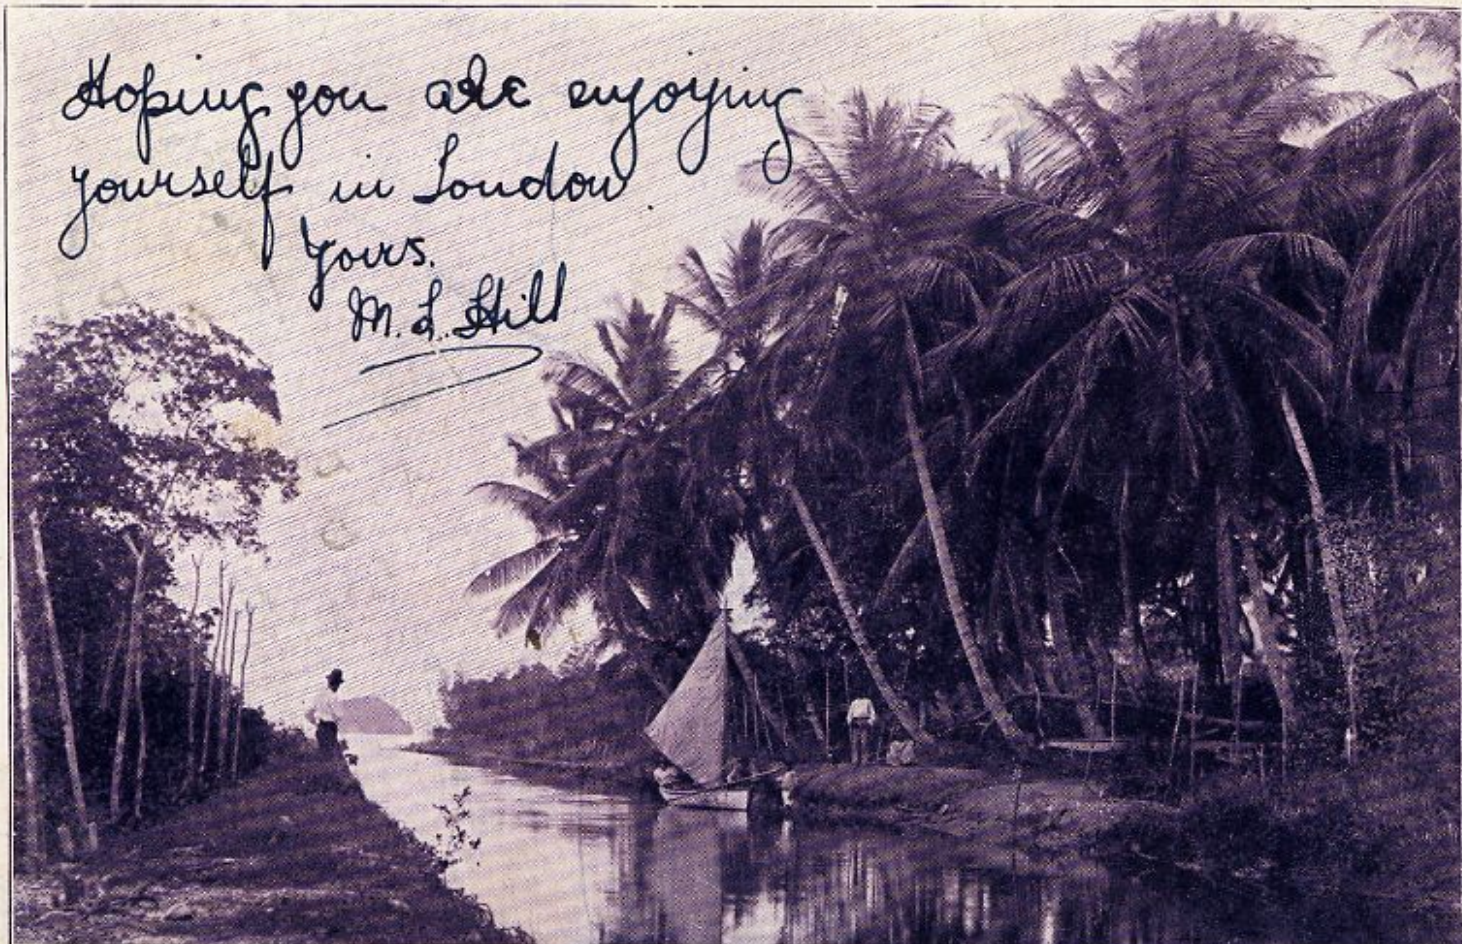 Hoping you are enjoying
yourself in London.
Yours.
M. L. Hill